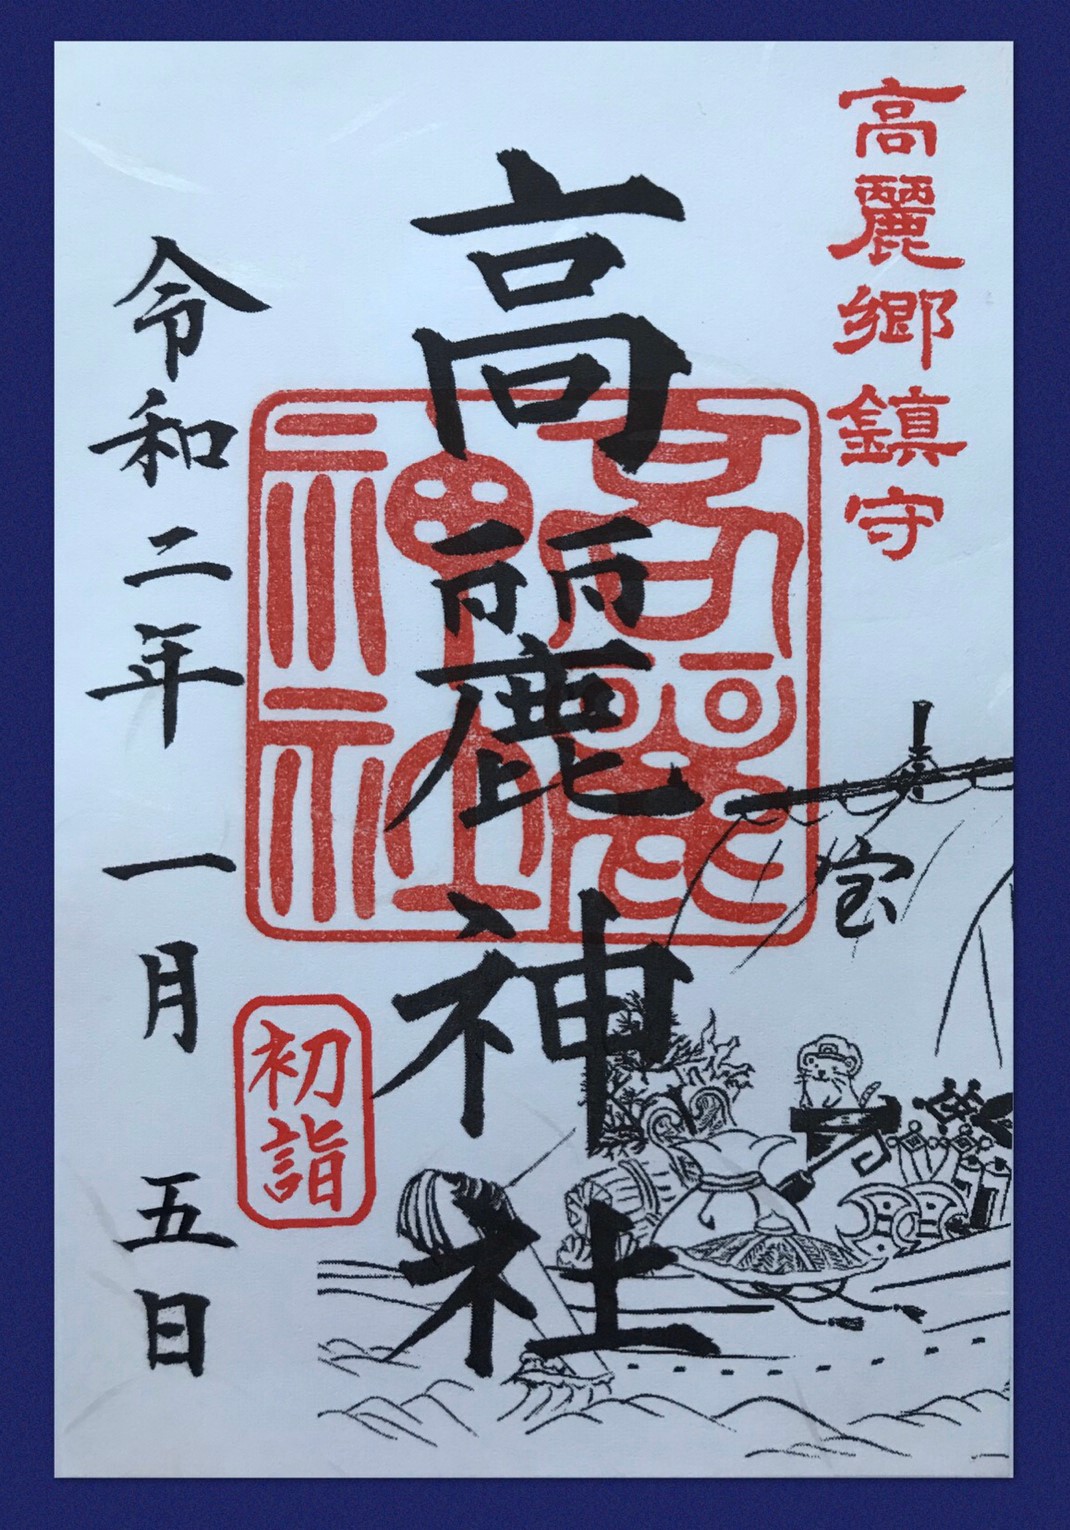 高麗郷鎮守
宝
高麗神社
高麗神社
初詣
令和二年一月五日